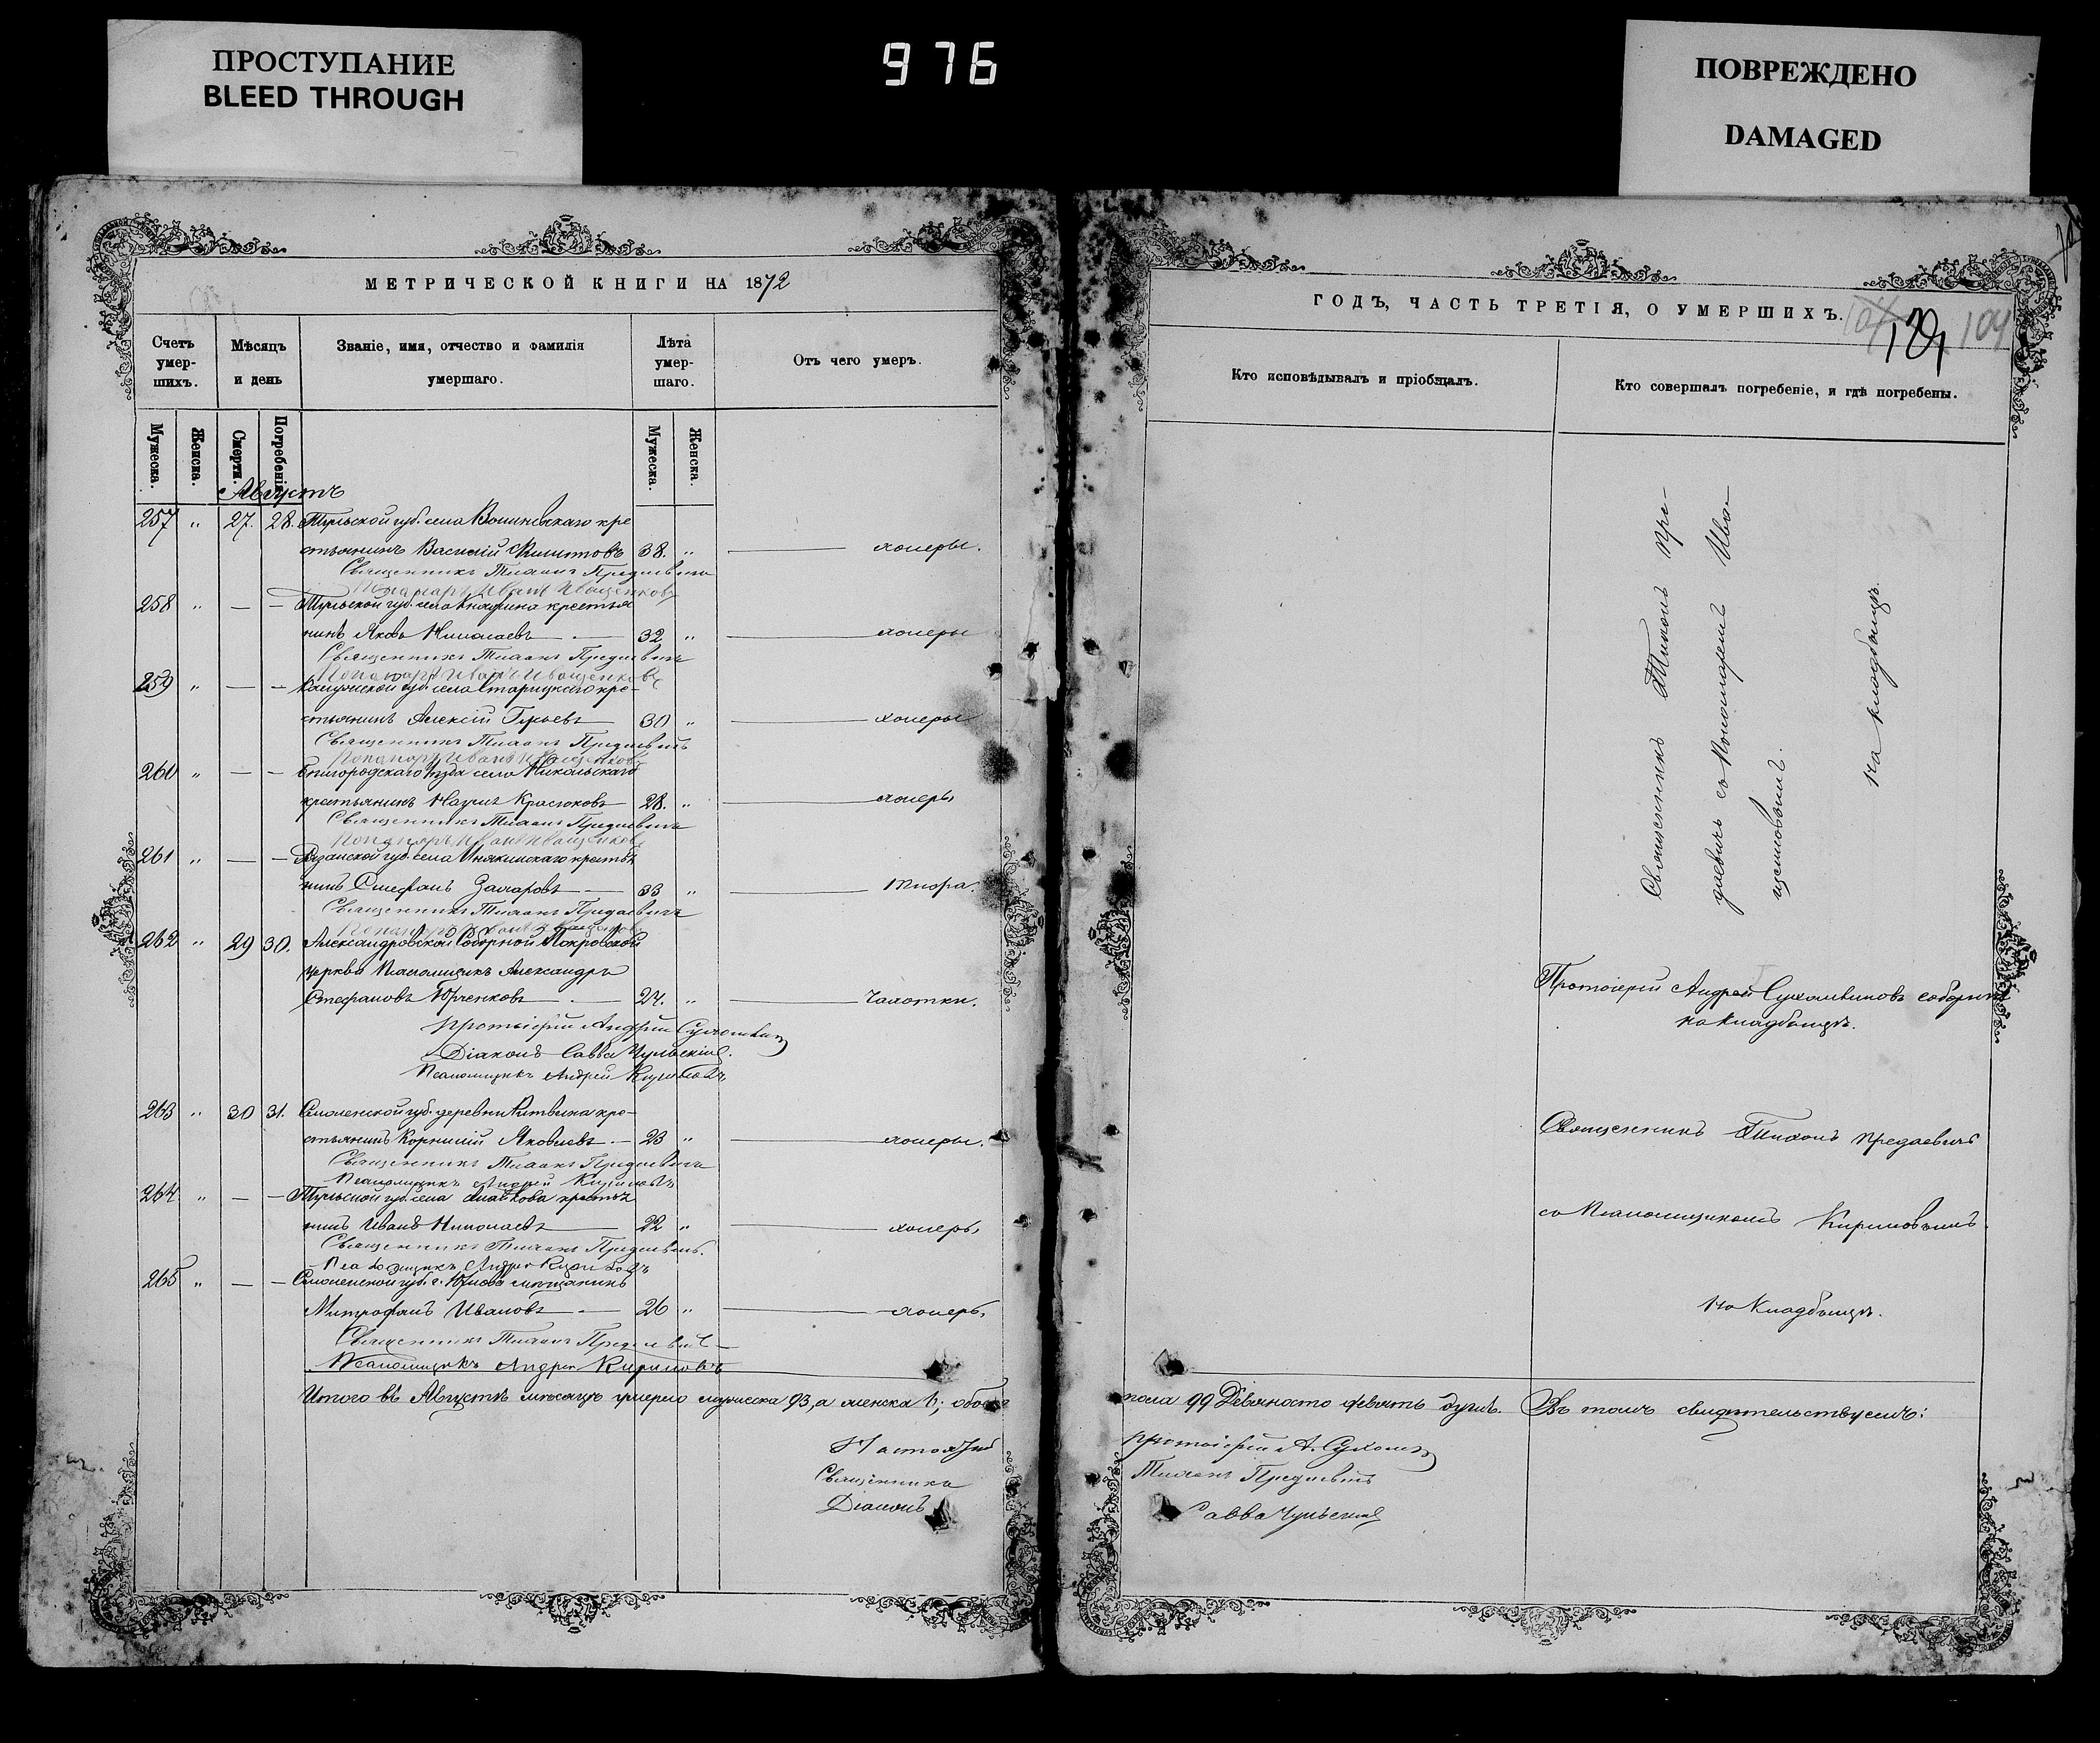 ПРОСТУПАНИЕ
BLEED THROUGH
976
ПОВРЕЖДЕНО
DAMAGED
МЕТРИЧЕСКОЙ КНИГИ НА 1872
Счетъ умер-шихъ.
Мѣсяцъ и день
Званіе, имя, отчество и фамилія умершаго.
Лѣта умер-шаго.
Отъ чего умеръ.
Мужеска.
Женска.
Смерти.
Погребенія.
Мужеска.
Женска.
Августъ
257 " 27. 28. Тульской губ. села кре
стьянинъ Василій 38. " — холеры.
Священникъ Тихонъ Предаевичъ
Пономарь Иванъ Иващенковъ
258 " — — Тульской губ. села Княгина крестья
нинъ Яковъ Николаевъ — 32 " — холеры
Священникъ Тихонъ Предаевичъ
Пономарь Иванъ Иващенковъ
259 " — — Калужской губ. села Старицкаго кре-
стьянинъ Алексій Гурьевъ — 30 " — холеры
Священникъ Тихонъ Предаевичъ
Пономарь Иванъ Иващенковъ
260 " — — уѣзда села Никольскаго
крестьянинъ Наумъ Красюковъ — 28. " — холеры
Священникъ Тихонъ Предаевичъ
Пономарь Иванъ Иващенковъ
261 " — — Рязанской губ. села крестья
нинъ Стефанъ Захаровъ — 33 " — тифа.
Священникъ Тихонъ Предаевичъ
Пономарь Иванъ Иващенковъ
262 " 29 30. Александровской Соборной Покровской
церкви Псаломщикъ Александръ
Стефановъ Юрченковъ — 24. " — Чахотки.
Протоіерей Андрей Сухомлиновъ
Діаконъ Савва Чульскій.
Псаломщикъ Андрей Кириловъ
263 " 30 31. Смоленской губ. деревни Литвина кре-
стьянинъ Корнилій Яковлевъ — 23 " — холеры.
Священникъ Тихонъ Предаевичъ
Псаломщикъ Андрей Кириловъ
264 " — — Тульской губ. села крестья
нинъ Иванъ Николаевъ — 22 " — холеры
Священникъ Тихонъ Предаевичъ.
Псаломщикъ Андрей Кириловъ
265 " — — Смоленской губ. г. Юхнова мѣщанинъ
Митрофанъ Ивановъ — 26 " — холеры
Священникъ Тихонъ Предаевичъ
Псаломщикъ Андрей Кириловъ
Итого въ Августѣ мѣсяцѣ умерло мужеска 93, а женска 6; обоего
Настоятель
Священникъ
Діаконъ
ГОДЪ, ЧАСТЬ ТРЕТІЯ, О УМЕРШИХЪ.
104
Кто исповѣдывалъ и пріобщалъ.
Кто совершалъ погребеніе, и гдѣ погребены.
Священникъ Тихонъ Пре-
даевичъ съ Пономаремъ Ива-
щенковымъ.
на кладбищѣ.
Протоіерей Андрей Сухомлиновъ соборнѣ
на кладбищѣ.
Священникъ Тихонъ Предаевичъ
съ Псаломщикомъ Кириловымъ.
на Кладбищѣ.
пола 99 Девяносто девять душъ. Въ томъ свидѣтельствуемъ:
Протоіерей А. Сухомлиновъ
Тихонъ Предаевичъ
Савва Чульскій